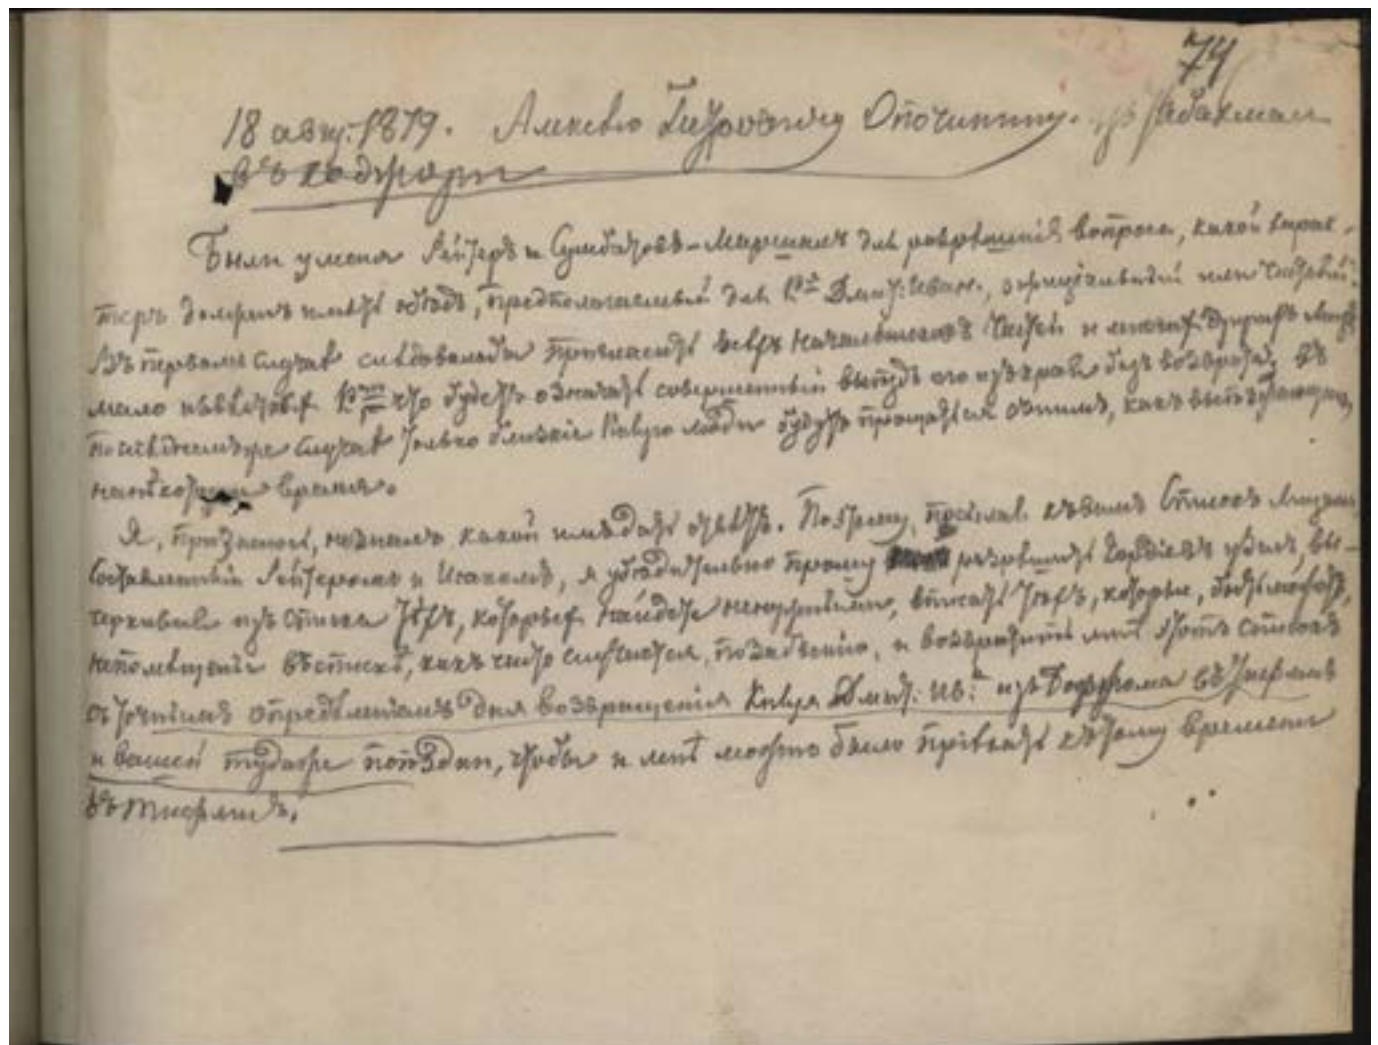 74
18 авгу. 1879. Алексею Петровичу Опочинину. изъ Абастман
въ коджоры
Были у меня Рейтеръ и Сумбатовъ-Маршалъ для разрѣшенія вопроса, какой харак-
теръ долженъ имѣть обѣдъ, предполагаемый для К-зя Дмит: Иван., официальный или частный.
Въ первомъ случаѣ слѣдовало бы пригласить всѣхъ начальниковъ частей и многихъ другихъ лицъ
мало извѣстныхъ что будетъ означать совершенный выѣздъ его изъ края безъ возврата; въ
послѣднемъ же случаѣ только близкіе Князю люди будутъ прощаться съ нимъ, какъ выѣзжающимъ
на нѣкоторое время.
Я, признаюсь, не знаю какой имъ дать отвѣтъ. Поэтому, къ вамъ Списокъ лицамъ
составленный Рейтеромъ и Исаковымъ, я убѣдительно прошу разрѣшить Гордіевъ узелъ, вы-
черкивая изъ списка тѣхъ, которыхъ найдете ненужными, вписать тѣхъ, которые, быть можетъ,
не помѣщены въ списокъ, какъ часто случается, по забвенію, и возвратить мнѣ этотъ списокъ
съ точнымъ опредѣленіемъ дня возвращенія Князя Дмит: Ив: изъ Боржома въ Тифлисъ
и вашей туда же поѣздки, чтобы и мнѣ можно было пріѣхать къ тому времени
въ Тифлисъ.